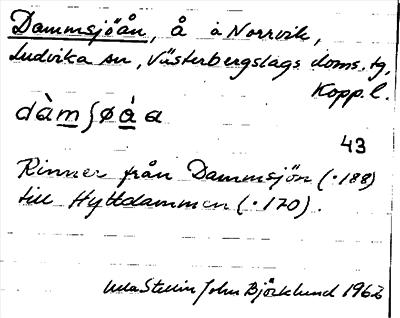 Dammsjöån, å å Norrvik,
Ludvika sn, Västerbergslags doms. tg,
Kopp. l.
dàmʃøáa
43
Rinner från Dammsjön (·188)
till Hyttdammen (·170).
John Björklund 1962